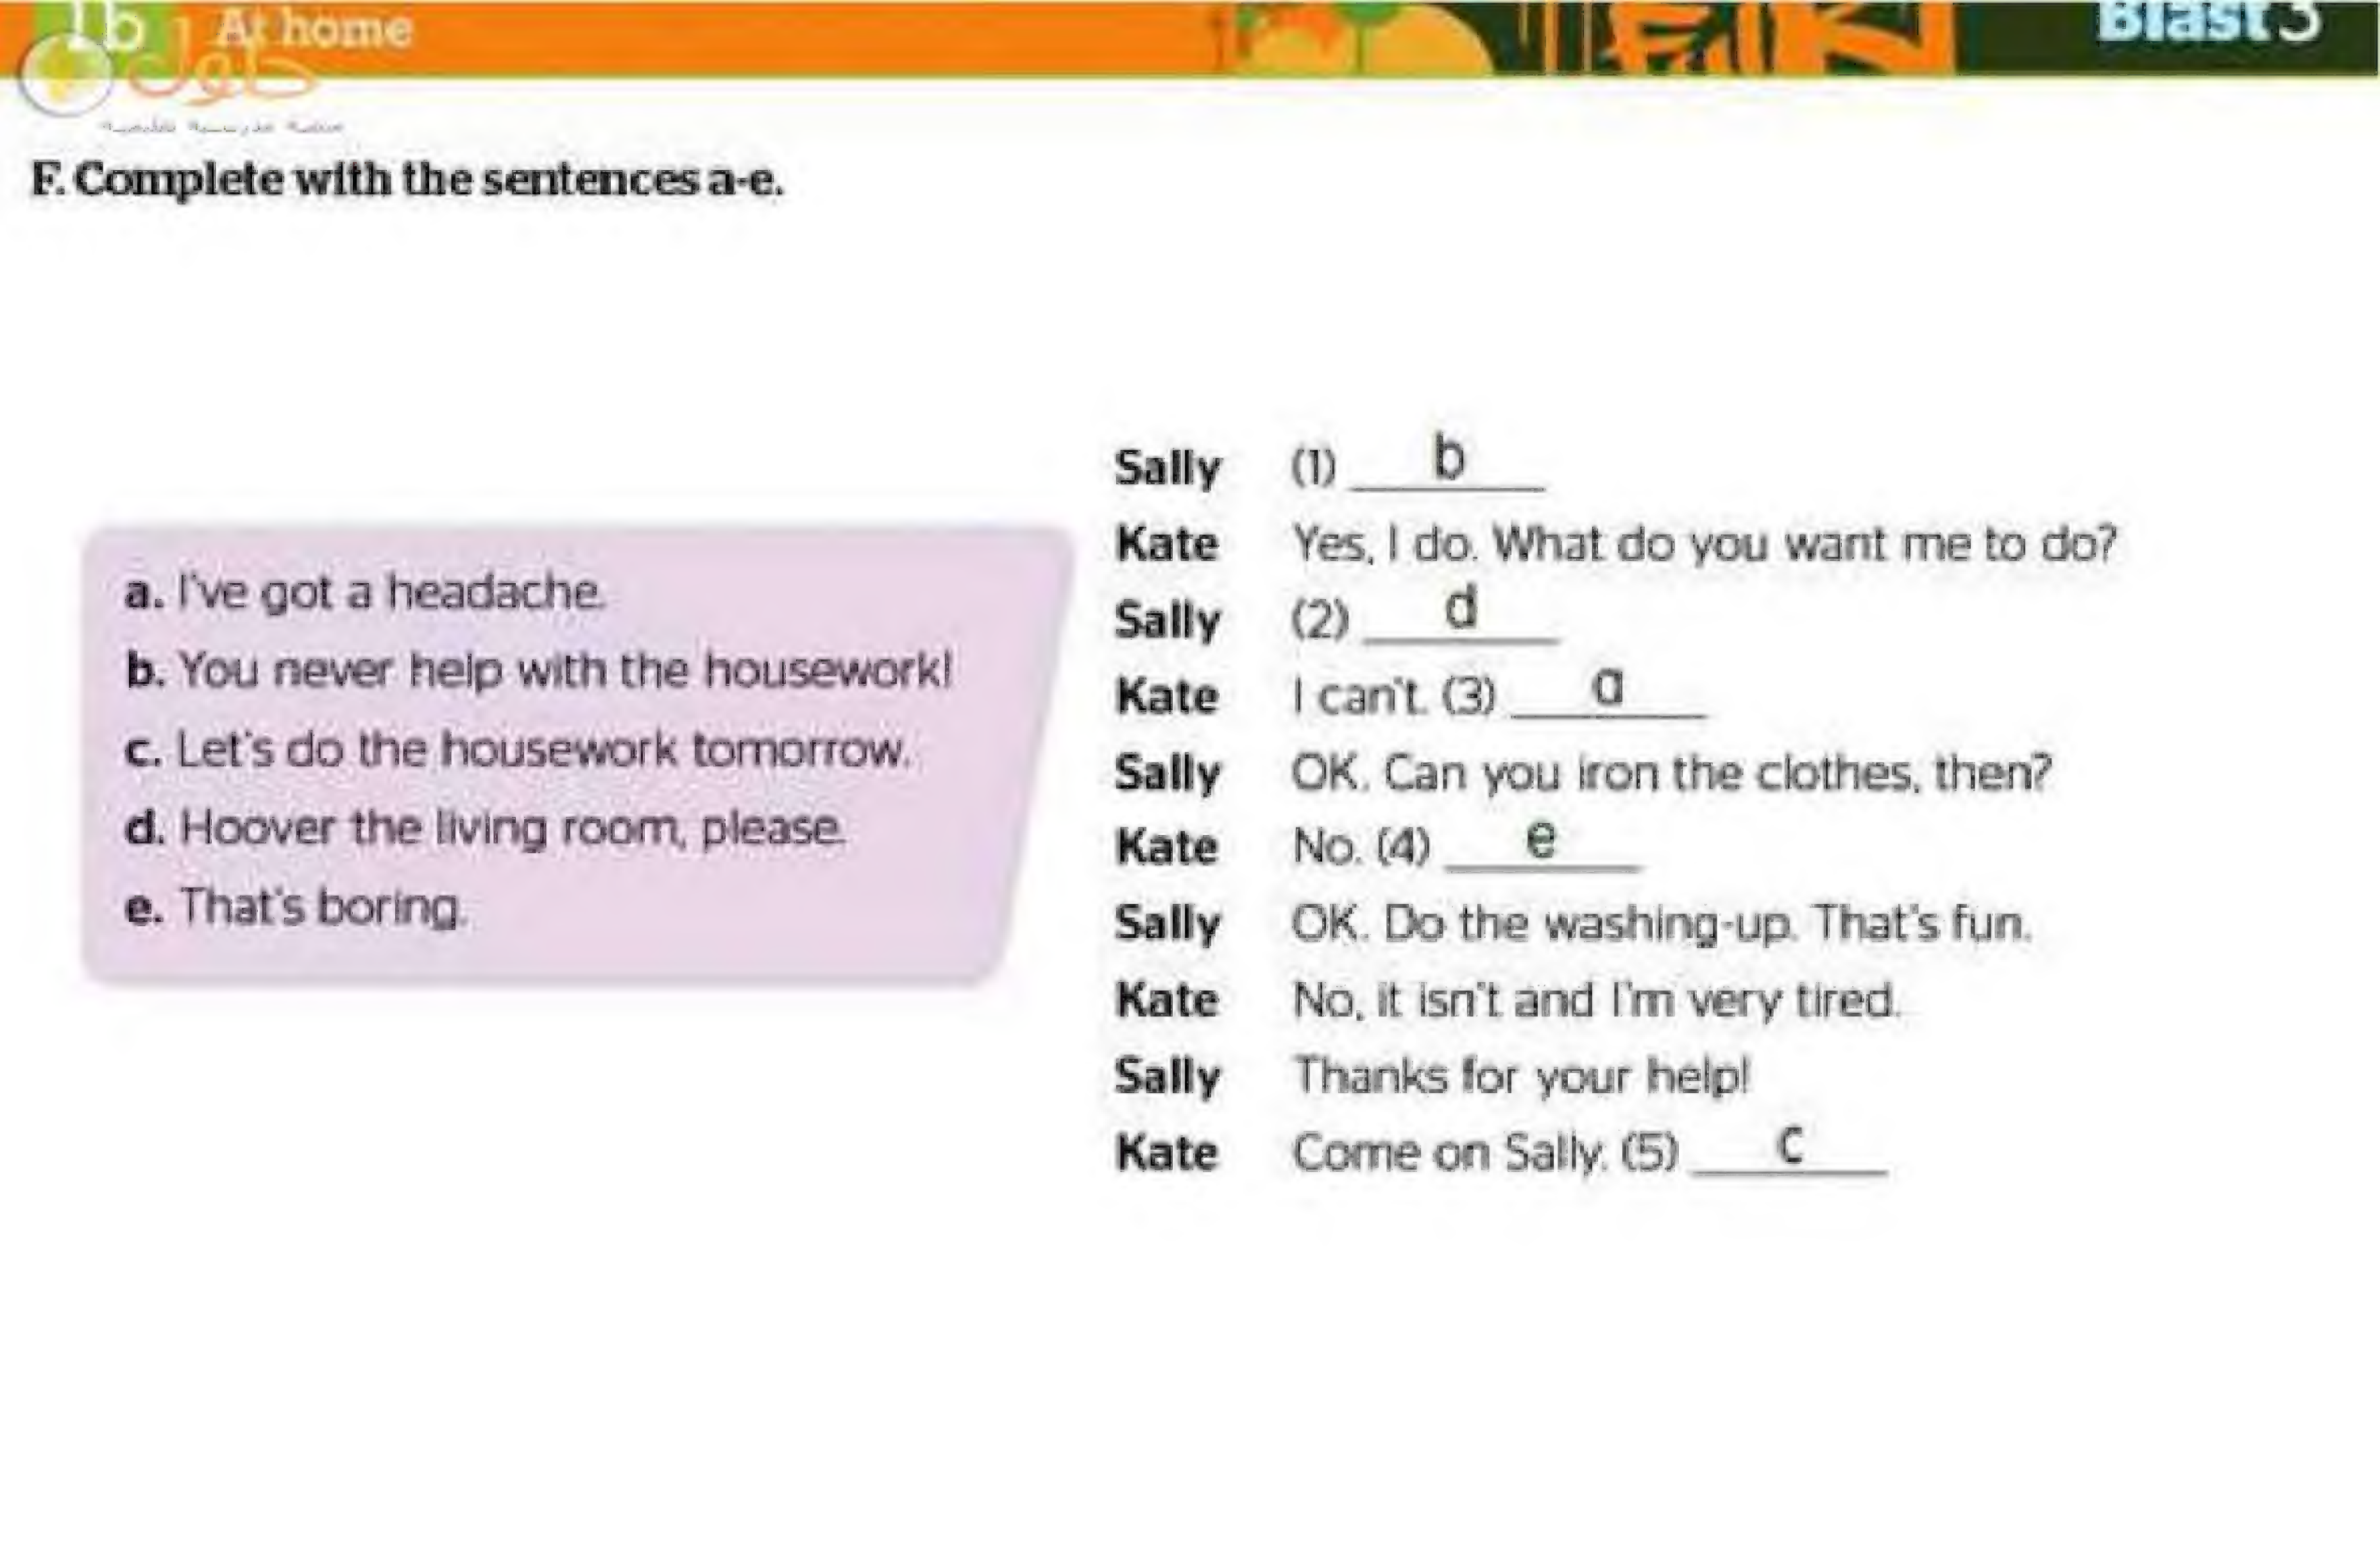 1b At home
Blast 3
حلول
F. Complete with the sentences a-e.
a. I've got a headache.
b. You never help with the housework!
c. Let's do the housework tomorrow.
d. Hoover the living room, please.
e. That's boring.
Sally (1) b
Kate Yes, I do. What do you want me to do?
Sally (2) d
Kate I can't. (3) a
Sally OK. Can you iron the clothes, then?
Kate No. (4) e
Sally OK. Do the washing-up. That's fun.
Kate No, it isn't and I'm very tired.
Sally Thanks for your help!
Kate Come on Sally. (5) c